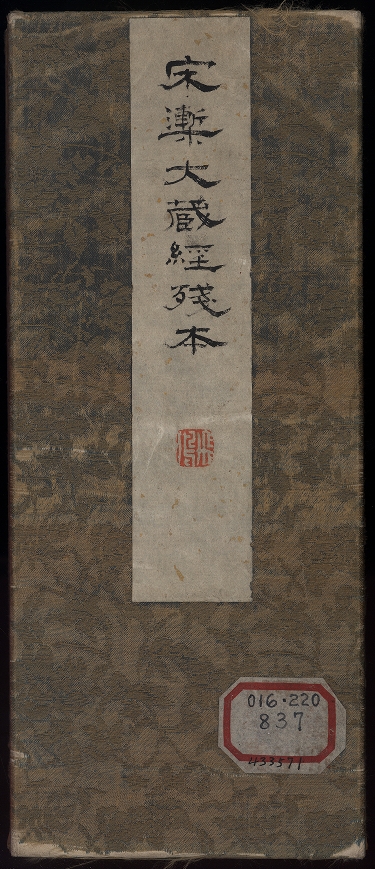 宋槧大藏經殘本
016・220
837
433571